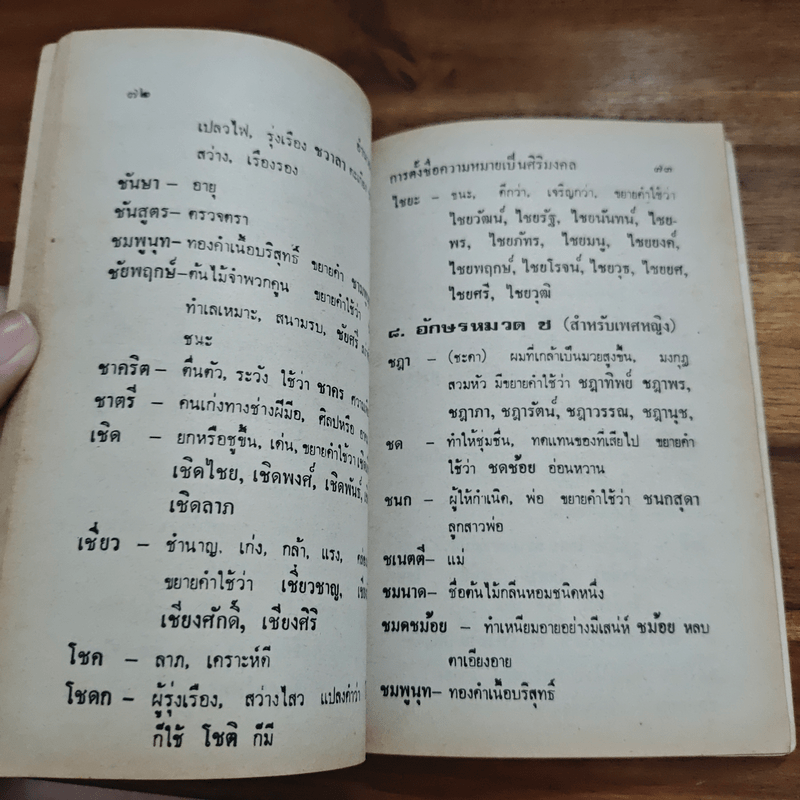 ๗๒
เปลวไฟ, รุ่งเรือง ชวาลา
สว่าง, เรืองรอง
ชันษา – อายุ
ชันสูตร– ตรวจตรา
ชมพูนุท–ทองคำเนื้อบริสุทธิ์ ขยายคำ
ชัยพฤกษ์–ต้นไม้จำพวกคูน ขยายคำใช้ว่า
ทำเลเหมาะ, สนามรบ, ชัยศรี
ชนะ
ชาคริต– ตื่นตัว, ระวัง ใช้ว่า ชาคร
ชาตรี – คนเก่งทางช่างฝีมือ, ศิลปหรือ
เชิด – ยกหรือชูขึ้น, เด่น, ขยายคำใช้ว่า
เชิดไชย, เชิดพงศ์, เชิดพันธ์,
เชิดลาภ
เชี่ยว – ชำนาญ, เก่ง, กล้า, แรง,
ขยายคำใช้ว่า เชี่ยวชาญ,
เชียงศักดิ์, เชียงศิริ
โชค – ลาภ, เคราะห์ดี
โชดก – ผู้รุ่งเรือง, สว่างไสว แปลงคำว่า
ก็ใช้ โชติ ก็มี
การตั้งชื่อความหมายเป็นศิริมงคล ๗๓
ไชยะ – ชนะ, ดีกว่า, เจริญกว่า, ขยายคำใช้ว่า
ไชยวัฒน์, ไชยรัฐ, ไชยนันทน์, ไชย-
พร, ไชยภัทร, ไชยมนู, ไชยยงค์,
ไชยพฤกษ์, ไชยโรจน์, ไชยวุธ, ไชยยศ,
ไชยศรี, ไชยวุฒิ
๘. อักษรหมวด ช (สำหรับเพศหญิง)
ชฎา – (ชะดา) ผมที่เกล้าเป็นมวยสูงขึ้น, มงกุฎ
สวมหัว มีขยายคำใช้ว่า ชฎาทิพย์ ชฎาพร,
ชฎาภา, ชฎารัตน์, ชฎาวรรณ, ชฎานุช,
ชด – ทำให้ชุ่มชื่น, ทดแทนของที่เสียไป ขยายคำ
ใช้ว่า ชดช้อย อ่อนหวาน
ชนก – ผู้ให้กำเนิด, พ่อ ขยายคำใช้ว่า ชนกสุดา
ลูกสาวพ่อ
ชเนตตี– แม่
ชมนาด– ชื่อต้นไม้กลิ่นหอมชนิดหนึ่ง
ชมดชม้อย – ทำเหนียมอายอย่างมีเสน่ห์ ชม้อย หลบ
ตาเอียงอาย
ชมพูนุท– ทองคำเนื้อบริสุทธิ์